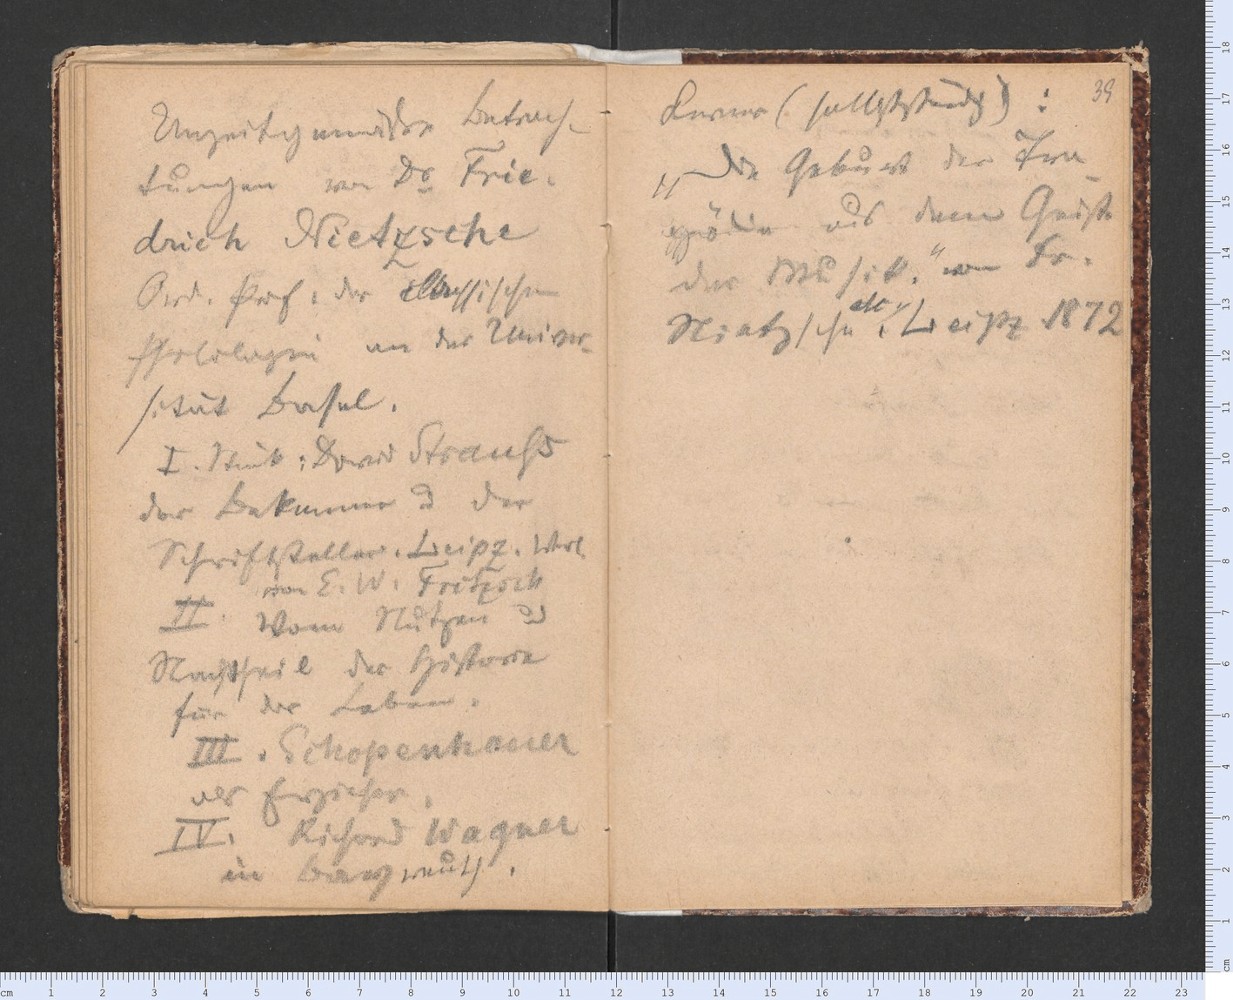 Unzeitgemäße Betrach-
tungen von Dr. Frie-
drich Nietzsche
Ord. Prof. der classischen
Philologie an der Univer-
sität Basel.
I. Stück: David Strauss
der Bekenner u der
Schriftsteller. Leipz. Verl.
von E. W. Fritzsch
II. Vom Nutzen u
Nachtheil der Historie
für das Leben.
III. Schopenhauer
als Erzieher.
IV. Richard Wagner
in Bayreuth.
39
Ferner (selbstständig):
„Die Geburt der Tra-
gödie aus dem Geiste
der Musik." von Fr.
Nietzsche etc. Leipz 1872